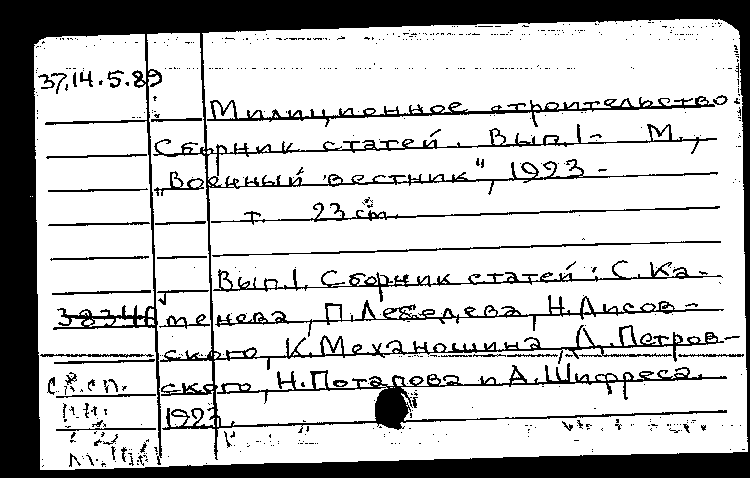 37.14.5.89
Милиционное строительство.
Сборник статей. Вып. 1- М.,
„Военный вестник", 1923 -
т. 23 см.
Вып. 1. Сборник статей: С. Ка-
38346 менева, П. Лебедева, Н. Лисов-
ского, К. Механошина, Д. Петров-
ского, Н. Потапова и А. Шифреса.
1923.